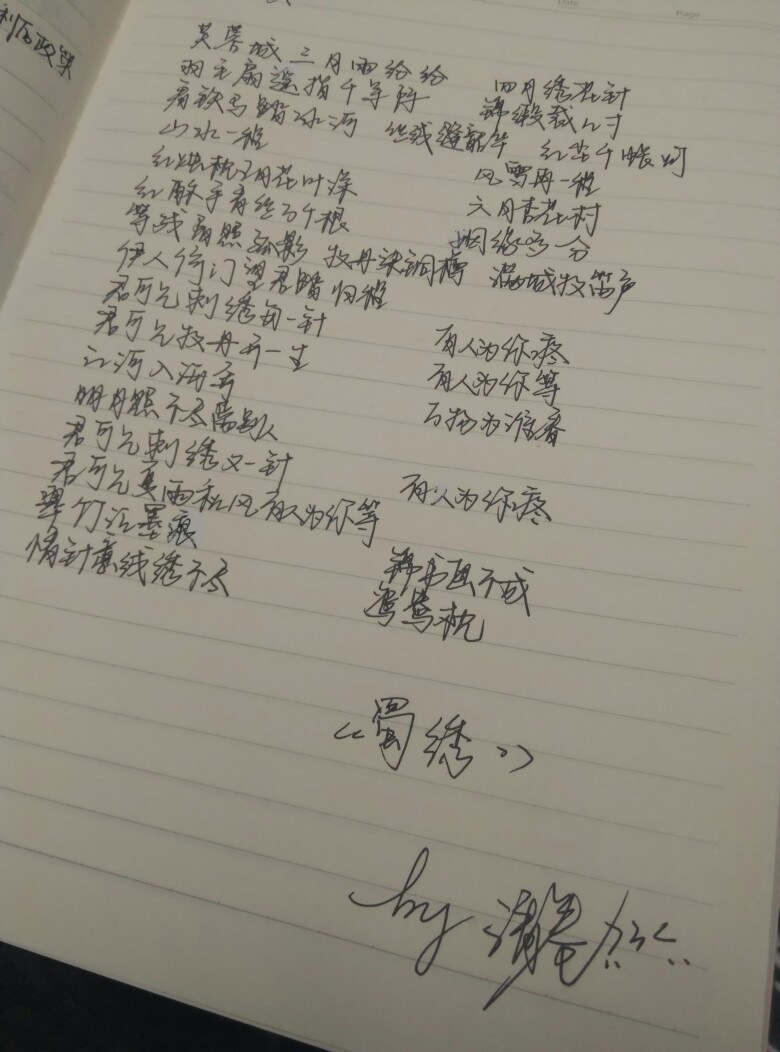 利后政策
Date
Page
芙蓉城三月雨纷纷 四月绣花针
羽毛扇遥指千军阵 锦缎裁几寸
看铁马踏冰河 丝线缝韶华 红尘千帐灯
山水一程 风雪再一程
红烛枕五月花叶深 六月杏花村
红酥手青丝万千根 姻缘多一分
等残阳照孤影 牡丹染铜樽 满城牧笛声
伊人倚门望君踏归程
君可见刺绣每一针 有人为你疼
君可见牡丹开一生 有人为你等
江河入海奔 万物为谁春
明月照不尽离别人
君可见刺绣又一针 有人为你疼
君可见夏雨秋风有人为你等
翠竹泣墨痕 锦书画不成
情针意线绣不尽 鸳鸯枕
《蜀绣》
by